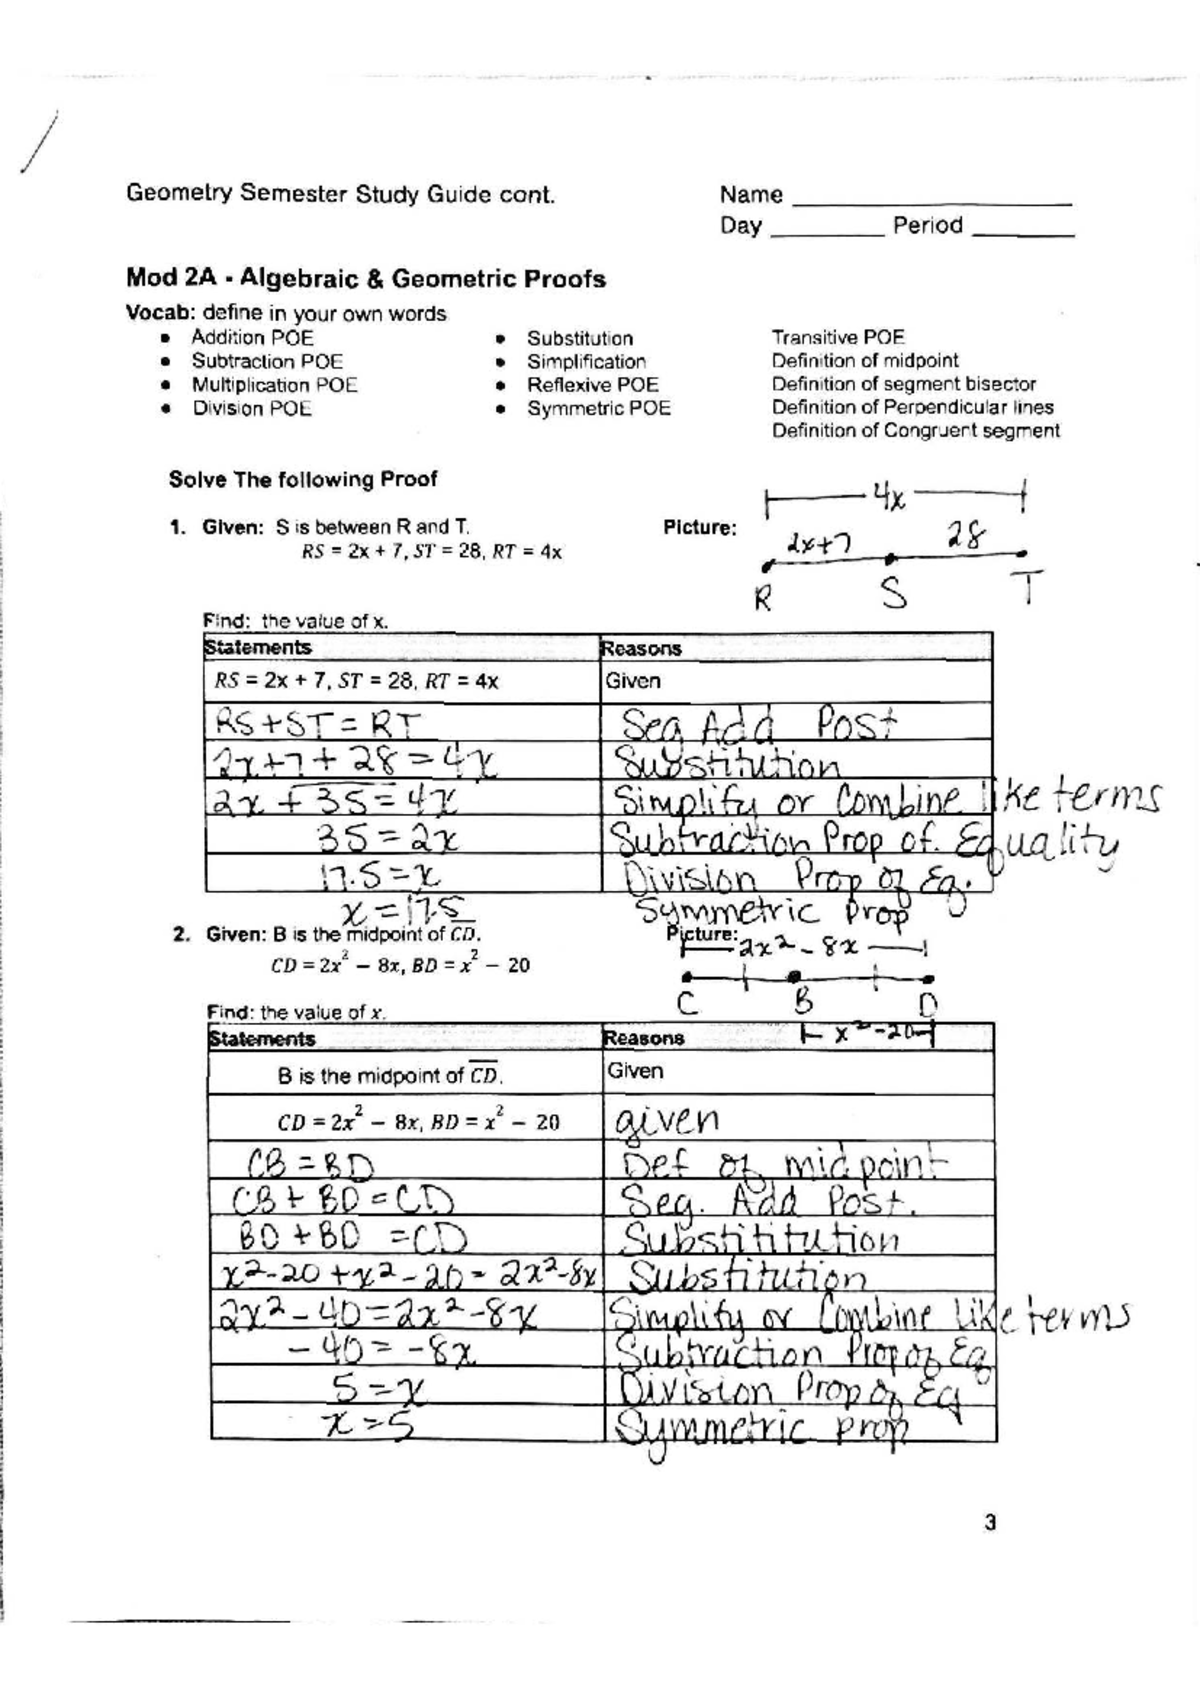 Geometry Semester Study Guide cont. Name
Day Period
Mod 2A - Algebraic & Geometric Proofs
Vocab: define in your own words
• Addition POE • Substitution Transitive POE
• Subtraction POE • Simplification Definition of midpoint
• Multiplication POE • Reflexive POE Definition of segment bisector
• Division POE • Symmetric POE Definition of Perpendicular lines
Definition of Congruent segment
Solve The following Proof
4x
1. Given: S is between R and T. Picture:
2x+7 28
RS = 2x + 7, ST = 28, RT = 4x
R S T
Find: the value of x.
Statements Reasons
RS = 2x + 7, ST = 28, RT = 4x Given
RS+ST=RT Seg Add Post
2x+7+28=4x Substitution
2x+35=4x Simplify or Combine like terms
35=2x Subtraction Prop of. Equality
17.5=x Division Prop of Eq.
x=17.5 Symmetric Prop
2. Given: B is the midpoint of CD. Picture:
2x²-8x
CD = 2x² − 8x, BD = x² − 20
C B D
Find: the value of x.
x²-20
Statements Reasons
B is the midpoint of CD. Given
CD = 2x² − 8x, BD = x² − 20 given
CB=BD Def of midpoint
CB+BD=CD Seg. Add Post.
BD+BD=CD Substititution
x²-20+x²-20=2x²-8x Substitution
2x²-40=2x²-8x Simplify or Combine Like terms
-40=-8x Subtraction Prop of Eq
5=x Division Prop of Eq
x=5 Symmetric prop
3